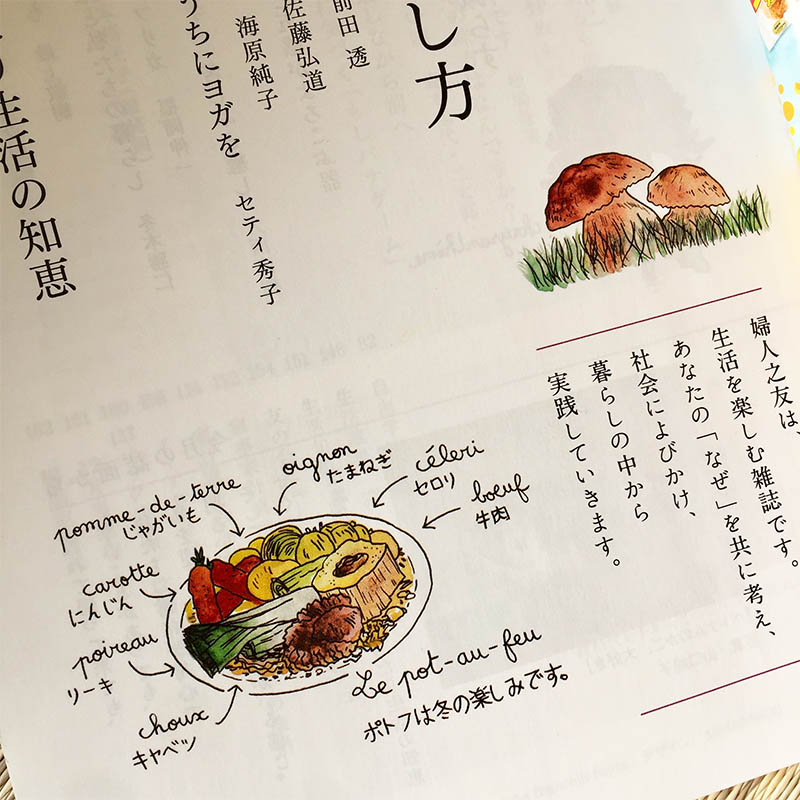 し方
前田 透
佐藤弘道
海原純子
うちにヨガを セティ秀子
生活の知恵
婦人之友は、
生活を楽しむ雑誌です。
あなたの「なぜ」を共に考え、
社会によびかけ、
暮らしの中から
実践していきます。
oignon
たまねぎ
céleri
セロリ
bœuf
牛肉
pomme-de-terre
じゃがいも
carotte
にんじん
poireau
リーキ
choux
キャベツ
Le pot-au-feu
ポトフは冬の楽しみです。